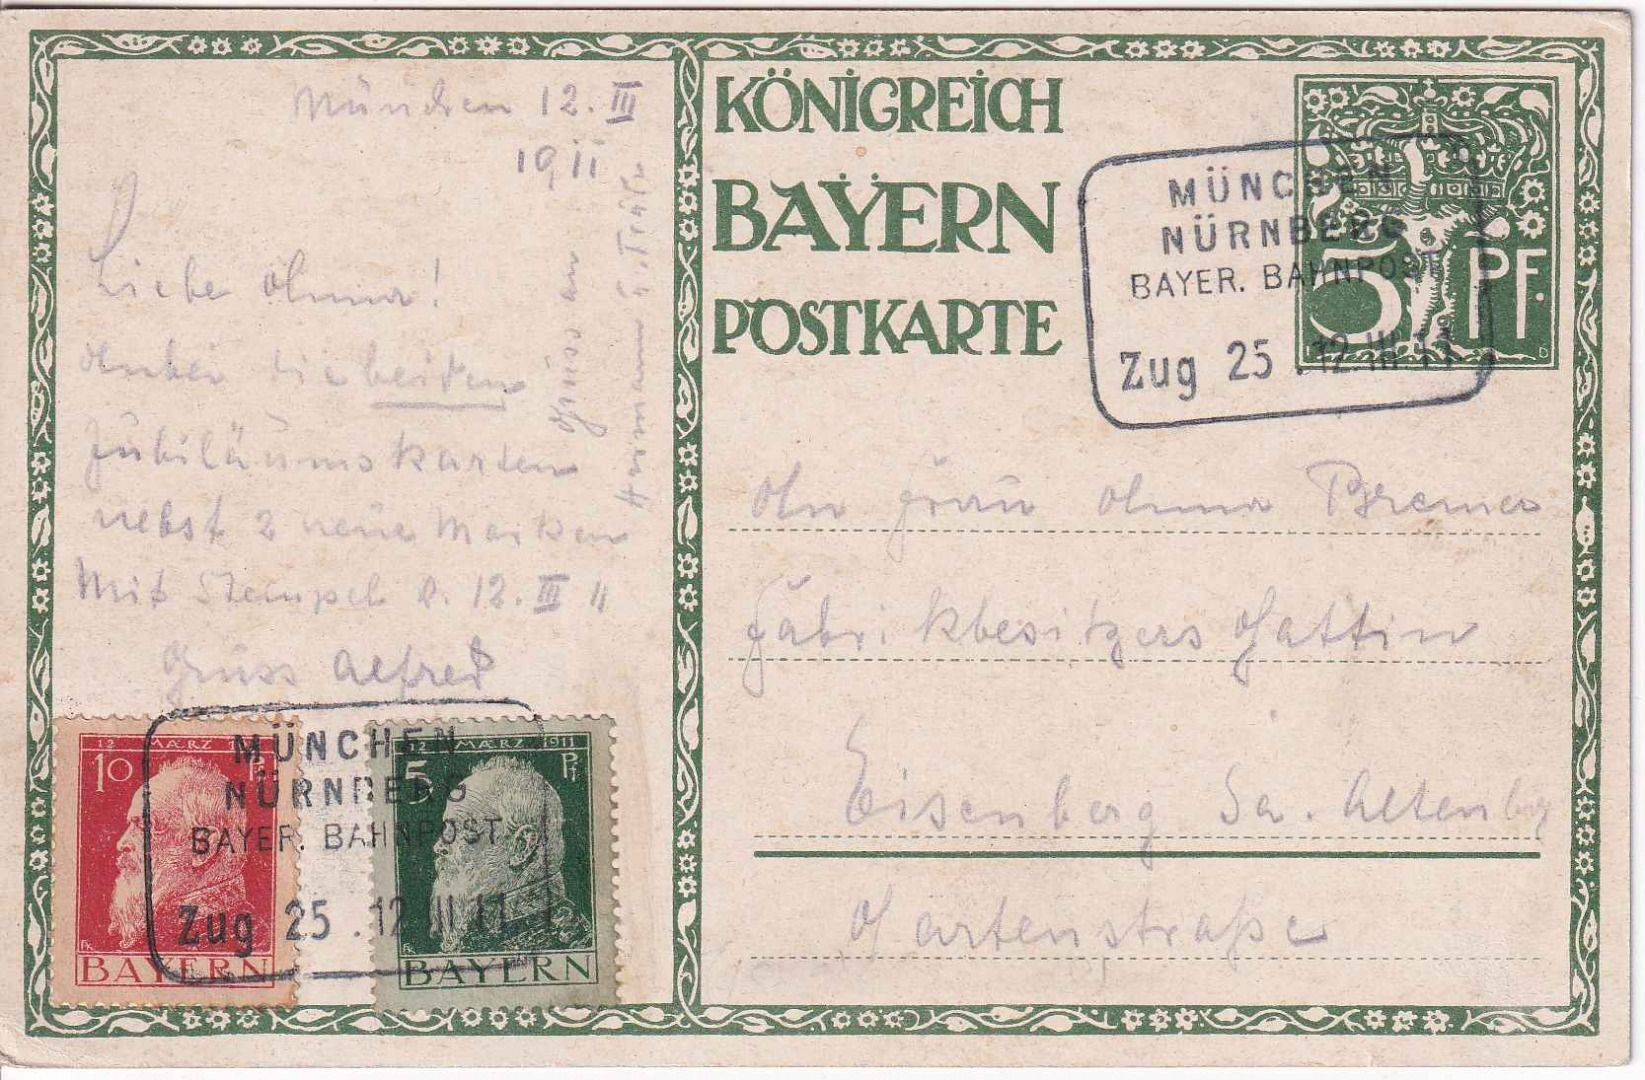 München 12. III
1911
Liebe Anna!
Anbei die beiden
Jubiläumskarten
nebst 2 neue Marken
Mit Stempel v. 12. III 11
Gruss Alfred
Gruss an
Hermann u. Trade
12 MÆRZ
10 Pf
BAYERN
12 MÆRZ 1911
5 Pf
BAYERN
MÜNCHEN
NÜRNBERG
BAYER. BAHNPOST
Zug 25 . 12 III 11
KÖNIGREICH
BAYERN
POSTKARTE
5 PF.
MÜNCHEN
NÜRNBERG
BAYER. BAHNPOST
Zug 25 . 12 III 11
An Frau Anna Bremer
Fabrikbesitzers Gattin
Eisenberg Sa. Altenbg
Gartenstraße